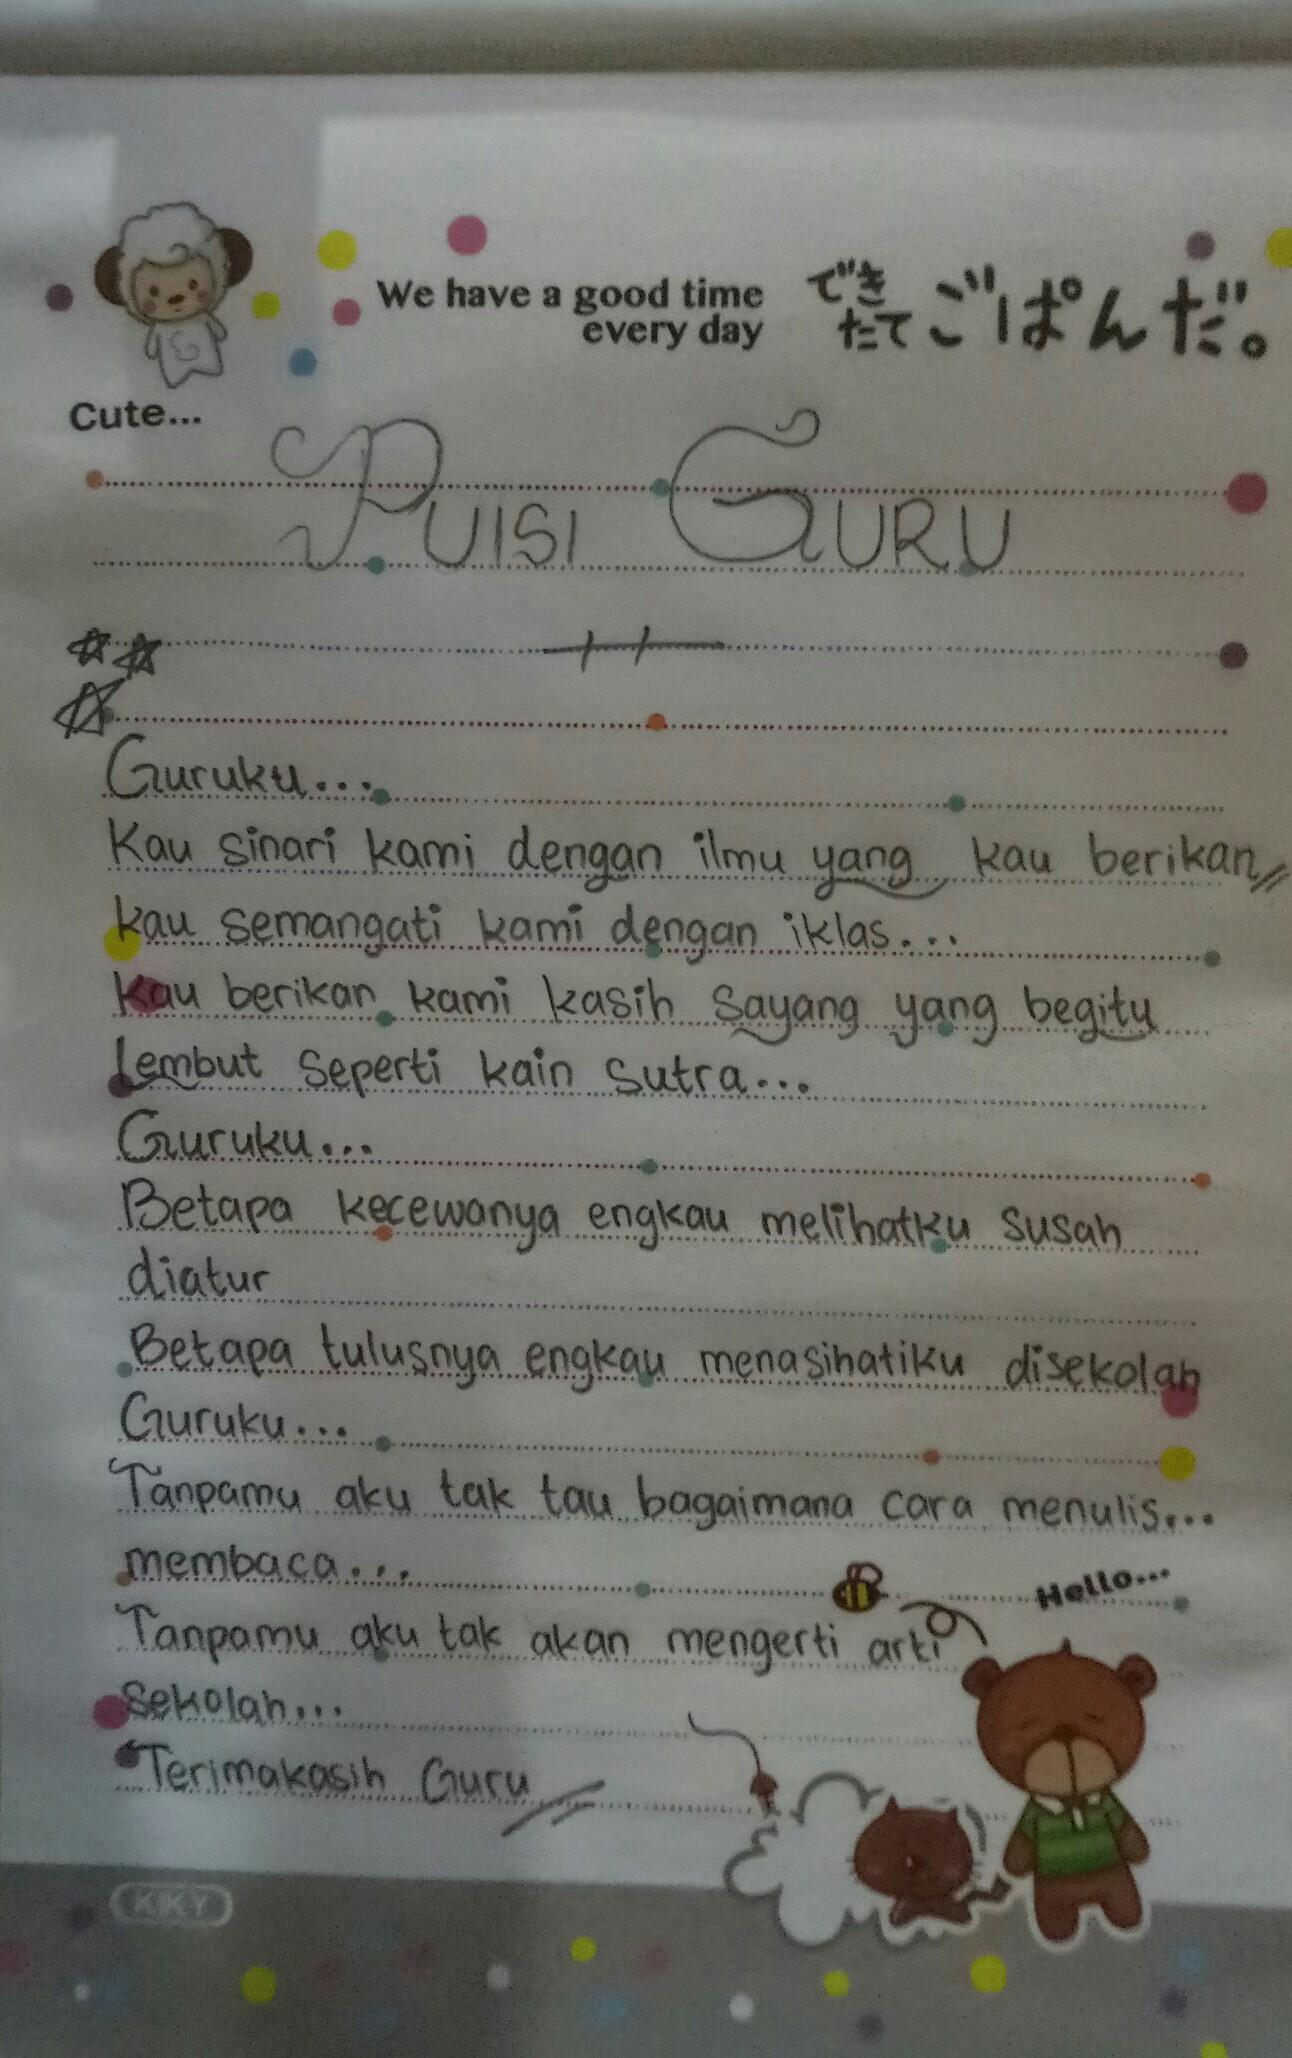 We have a good time
every day
でき
たて
ごぱんだ。
Cute...
PUISI GURU
Guruku...
Kau sinari kami dengan ilmu yang kau berikan
kau semangati kami dengan iklas...
Kau berikan kami kasih sayang yang begitu
Lembut seperti kain sutra...
Guruku...
Betapa kecewanya engkau melihatku susah
diatur
Betapa tulusnya engkau menasihatiku disekolah
Guruku...
Tanpamu aku tak tau bagaimana cara menulis...
membaca...
Hello...
Tanpamu aku tak akan mengerti arti
sekolah...
Terimakasih Guru
KIKY